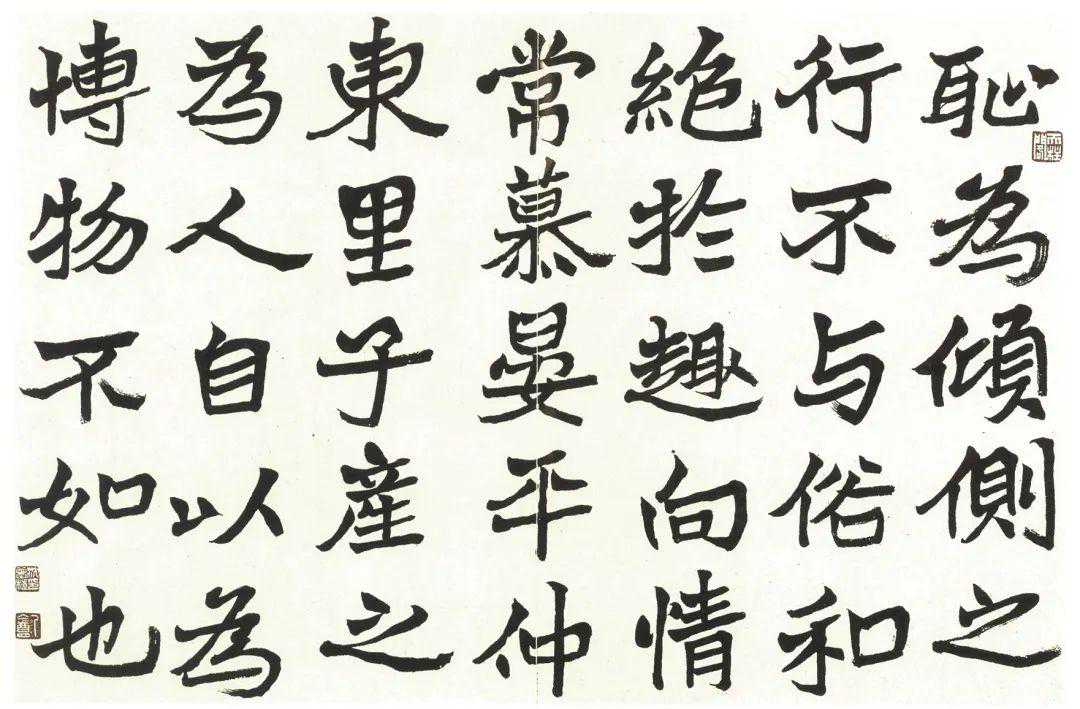 恥為傾側之
行不与俗和
絶扵趣向情
常慕晏平仲
東里子産之
為人自以為
博物不如也